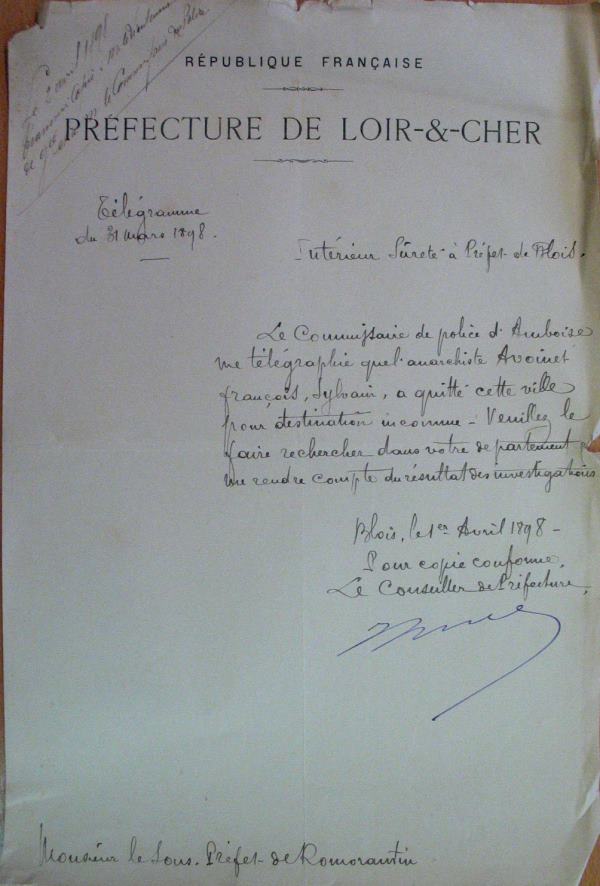 Le 2 avril 1898
transmis Copie à M. le Lieutenant
de gie et à M. le Commissaire de Police
RÉPUBLIQUE FRANÇAISE
PRÉFECTURE DE LOIR-&-CHER
Télégramme
du 31 mars 1898.
Intérieur Sûreté à Préfet de Blois.
Le Commissaire de police d'Amboise
me télégraphie que l'anarchiste Avoinet
François, Sylvain, a quitté cette ville
pour destination inconnue - Veuillez le
faire rechercher dans votre département &
me rendre compte du résultat des investigations
Blois, le 1er Avril 1898 -
Pour copie conforme,
Le Conseiller de Préfecture,
Monsieur le Sous-Préfet de Romorantin